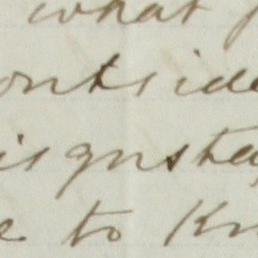 what
outside
isgusted
e to Kn